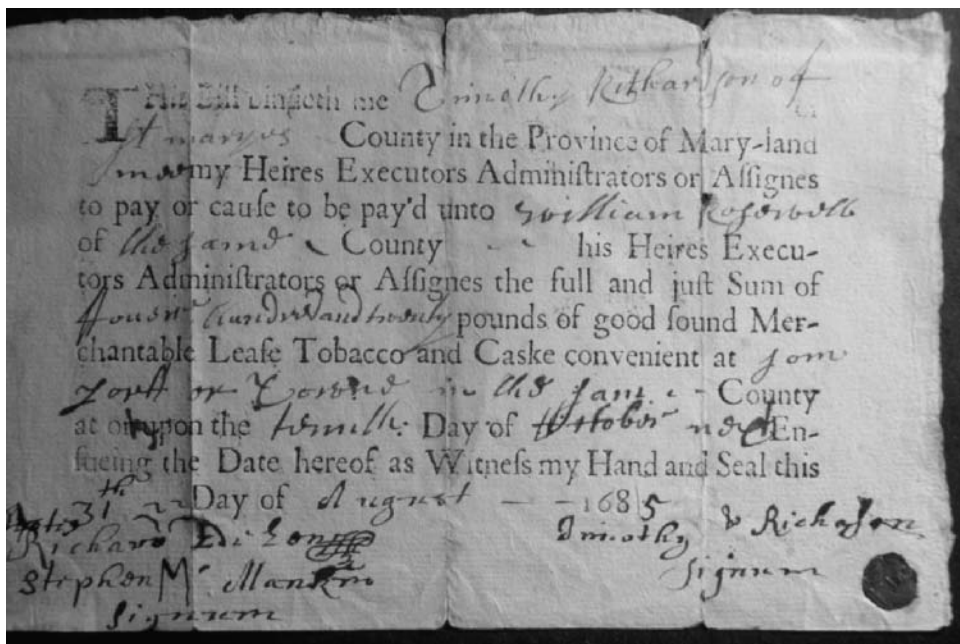 This Bill bindeth me Timothy Richardson of
St maryes County in the Province of Mary-land
my Heires Executors Administrators or Assignes
to pay or cause to be pay'd unto William Rosewell
of the same County his Heires Execu-
tors Administrators or Assignes the full and just Sum of
fouer hundred and twenty pounds of good sound Mer-
chantable Leafe Tobacco and Caske convenient at som
in the same County
at or upon the tennth: Day of October next En-
sueing the Date hereof as Witness my Hand and Seal this
31th Day of August 1685
Richard
Timothy Richason
Stephen
Signum
Signum